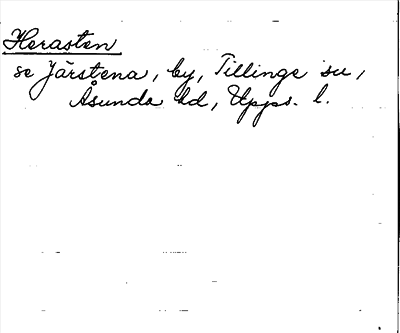 Herasten
se Järstena, by, Tillinge sn,
Åsunda hd, Upps. l.